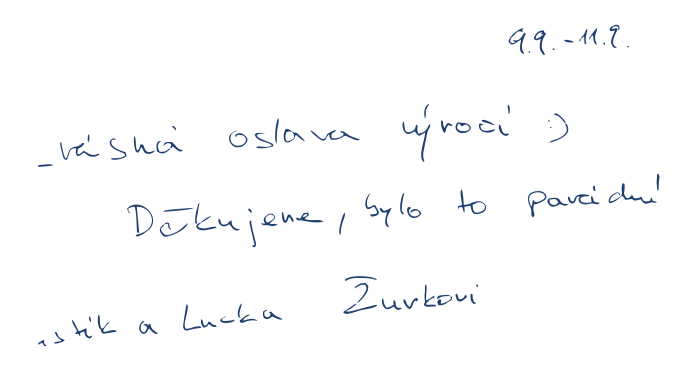 9.9. - 11.9.
oslava výročí :)
Děkujeme, bylo to parádní
a Lucka Žurkovi